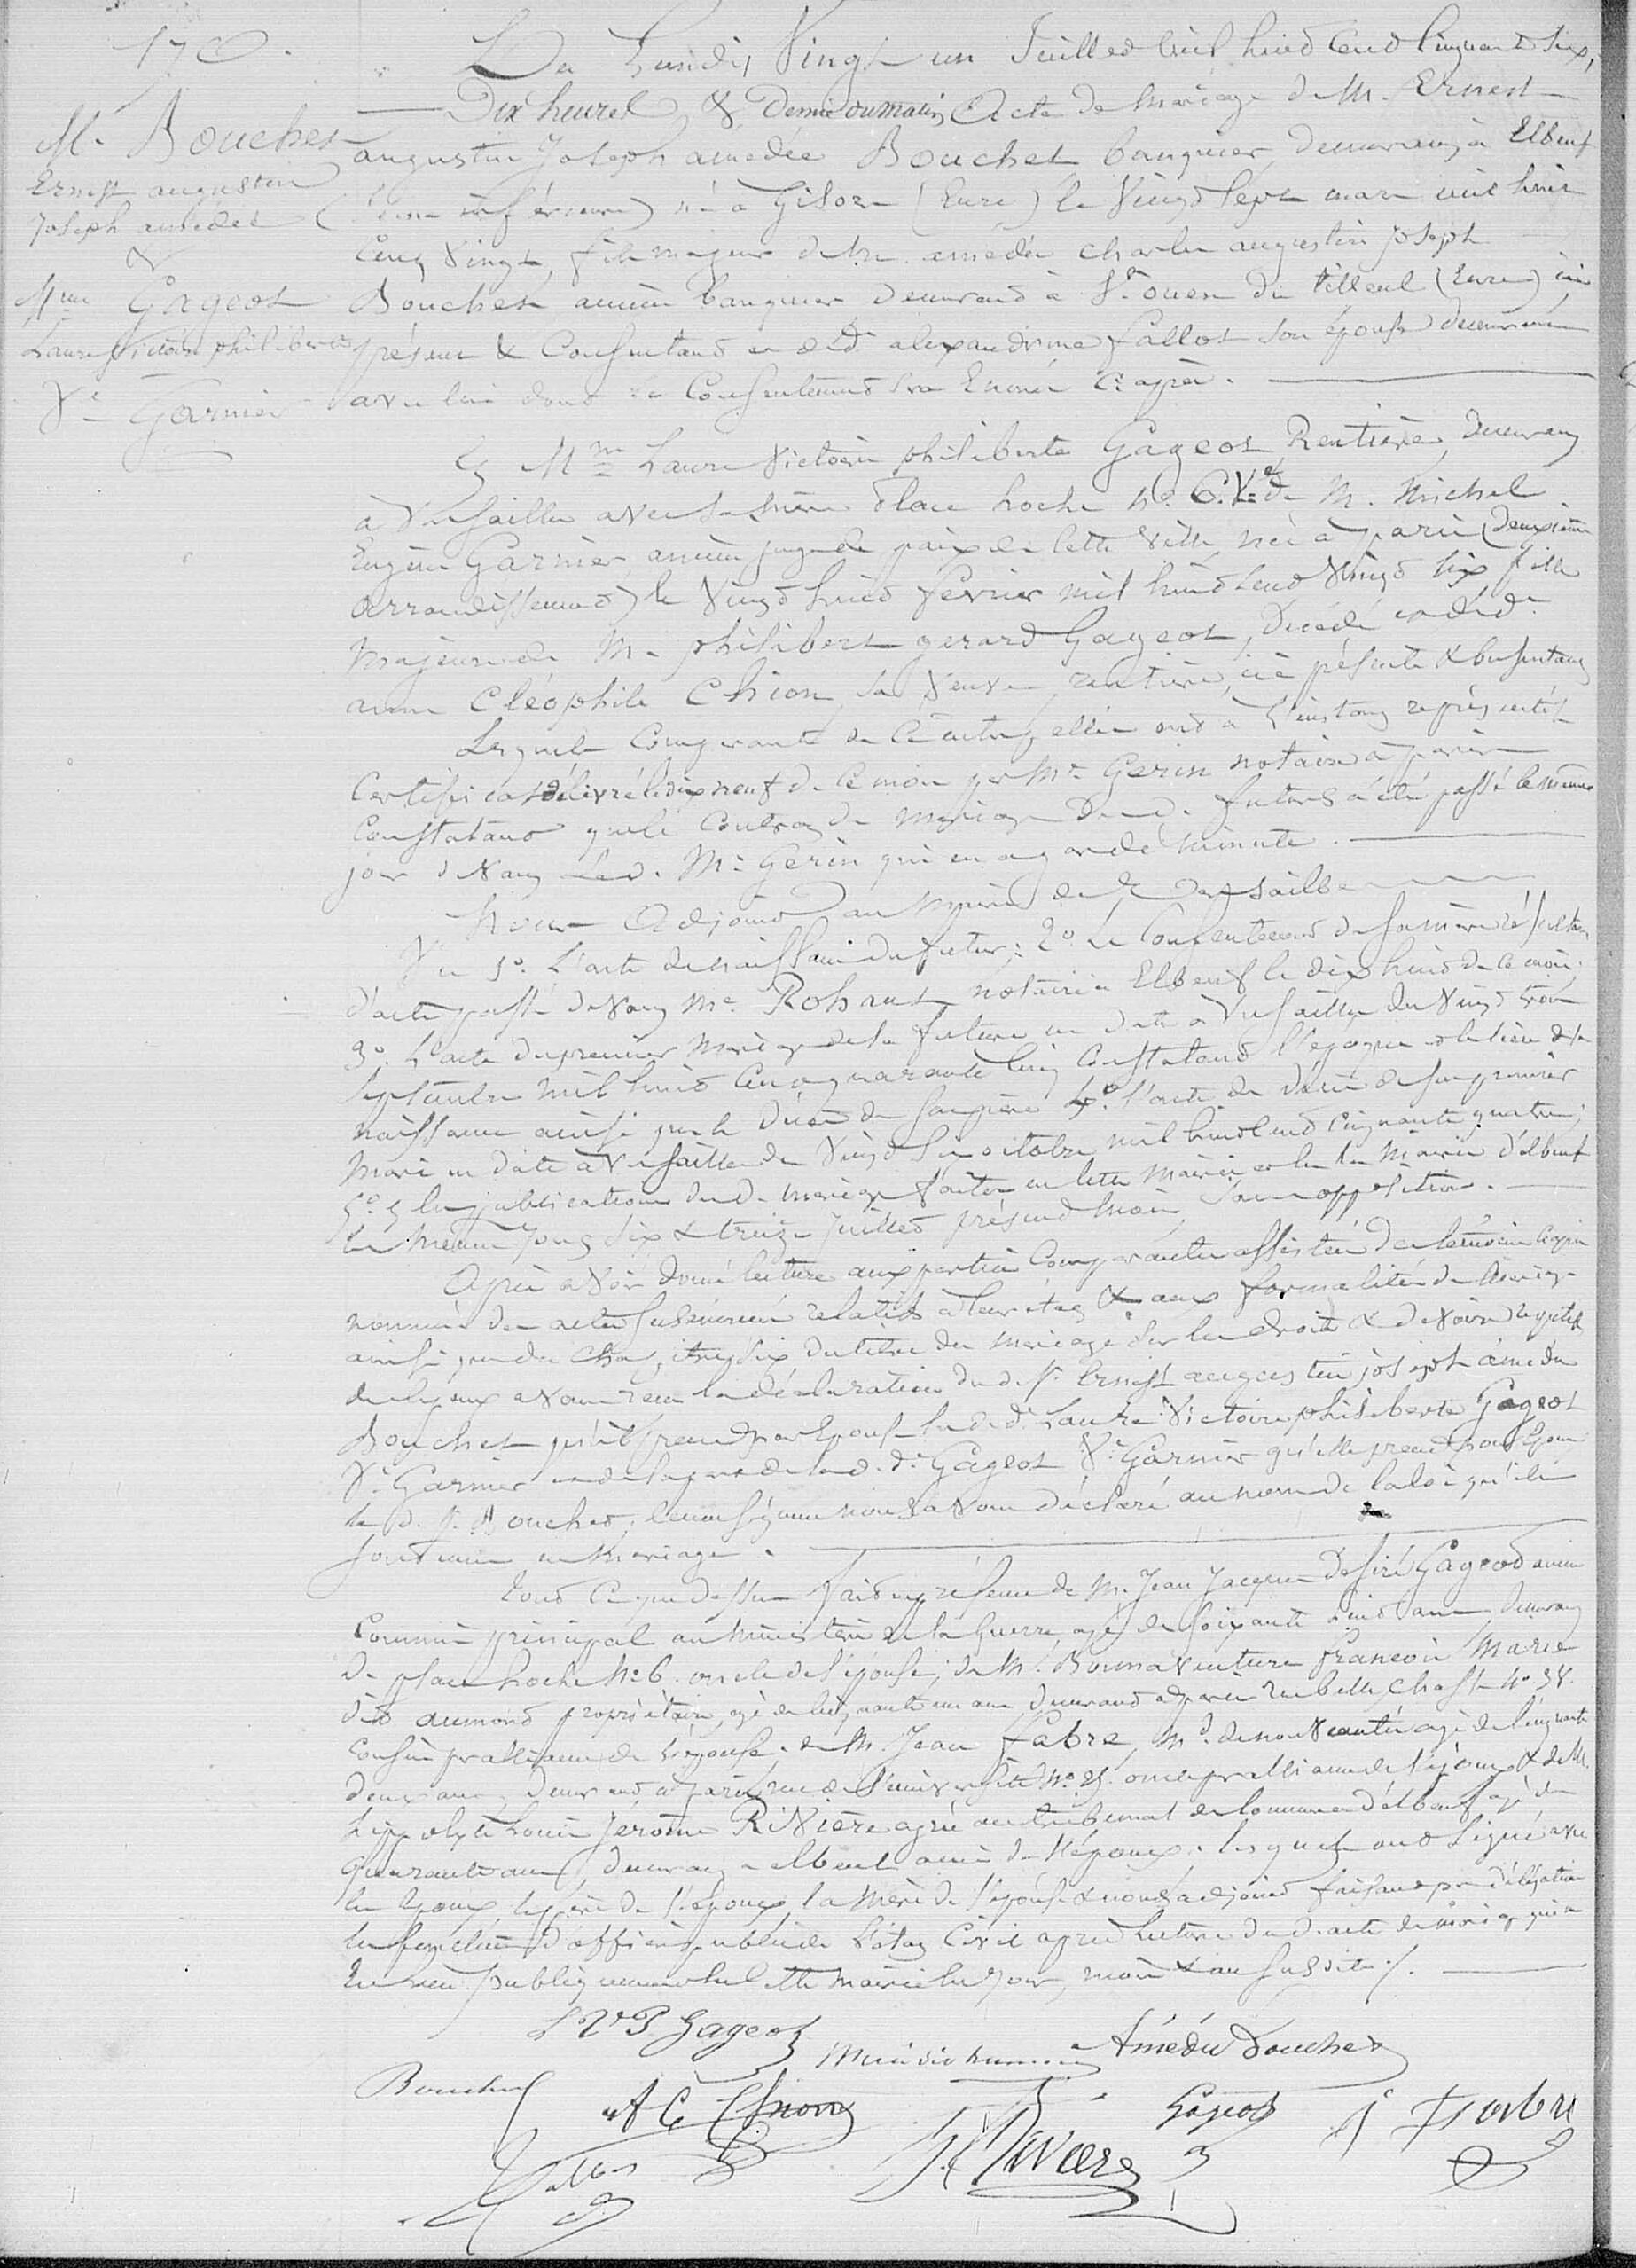 170.
M. Bouchet
Ernest augustin
Joseph amédée
&
Mme Gageot
Laure Victoire philiberte
Ve Garnier
Du Lundi Vingt un Juillet mil huit Cent Cinquante Six,
Dix heures & Demie du matin, Acte de mariage de M. Ernest
augustin Joseph amédée Bouchet banquier, demeurant à Elbeuf
(Seine inférieure) né à Gisors (Eure) le Vingt Sept mars mil huit
Cent Vingt, fils majeur de M. amédée Charles augustin joseph
Bouchet ancien banquier demeurant à St. ouen du tilleul (Eure) ici
présent & Consentant et de de. alexandrine fallot son épouse demeurant
avec lui dont le Consentement sera Enoncé Ci après.
Et Mme Laure Victoire philiberte Gageot, Rentière, demeurant
à Versailles avec sa mère place hoche No. 6. Ve de M. Michel
Eugène Garnier, ancien juge de paix de cette Ville, née à paris (deuxième
arrondissement) le Vingt huit février mil huit Cent Vingt six, fille
majeure de M. philibert gerard Gageot, Décédé et de de.
anne Cléophile Chion sa Veuve, rentière, ici présente & Consentant
Lesquels Comparants de Ce interpellés ont à l'instant représenté le
Certificat délivré le dix neuf de Ce mois par Me Gerin notaire à paris
Constatant que le Contrat de mariage des d. futurs a été passé le même
jour devant led. Me Gerin qui en a gardé minute.
Nous Adjoint au Maire de Versailles
Vu 1o. L'acte de naissance du futur; 2o. Le Consentement de sa mère résultant
d'acte passé devant Me. Rohaut notaire à Elbeuf le dix huit de Ce mois;
3o. L'acte du premier Mariage de la future en date à Versailles du Vingt trois
Septembre mil huit Cent quarante Cinq Constatant l'époque et le lieu de sa
naissance ainsi que le Décès de son père; 4o. l'acte de décès de son premier
Mari en date à Versailles du Vingt Six octobre mil huit Cent Cinquante quatre;
5o. Et les publications dud. mariage faites en cette Mairie et en la Mairie d'elbeuf
les mêmes jours Six & treize Juillet présent Mois Sans opposition.
Après avoir donné lecture aux parties Comparantes assistées des témoins Ci après
nommés des actes Susénoncés relatifs à leur état & aux formalités du Mariage
ainsi que du Chapitre six du titre du mariage Sur les droits & devoirs respectifs
des époux avons reçu la déclaration du d. Sr. Ernest augustin joseph amédée
Bouchet qu'il prend pour Epouse lad. de. Laure Victoire philiberte Gageot
Ve. Garnier et de la part de lad. de. Gageot Ve. Garnier qu'elle prend pour Epoux
le d. Sr. Bouchet; Conséquemment nous avons déclaré au nom de la loi qu'ils
sont unis en mariage.
Tout Ce que dessus fait en présence de M. Jean Jacques Désiré Gageot ancien
Commis principal au Ministère de la Guerre, agé de soixante huit ans, demeurant
De. place hoche No. 6. oncle de l'épouse; de M. Bonnaventure françois Marie
dit aumont propriétaire, agé de Cinquante un ans demeurant à paris rue belle Chasse No. 38.
Cousin par alliance de l'épouse; de M. Jean Fabre, Md. de nouveautés agé de Cinquante
deux ans, demeurant à paris, rue de l'université No. 25. oncle par alliance de l'époux & de M.
hippolyte Louis Jerome Rivière agréé au tribunal de Commerce d'elbeuf agé de
quarante ans, demeurant à elbeuf ami de l'époux; lesquels ont Signé avec
les Epoux, le père de l'époux, la Mère de l'épouse & nous adjoint faisant par délégation
les fonctions d'officier public de l'état Civil après Lecture dud. acte de mariage qui a
eu lieu publiquement en cette Mairie les jour, mois & an susdits.
L V P Gageot
Amédée Bouchet
Bouchet
A C Chion
H Rivière
Gageot
J Fabre